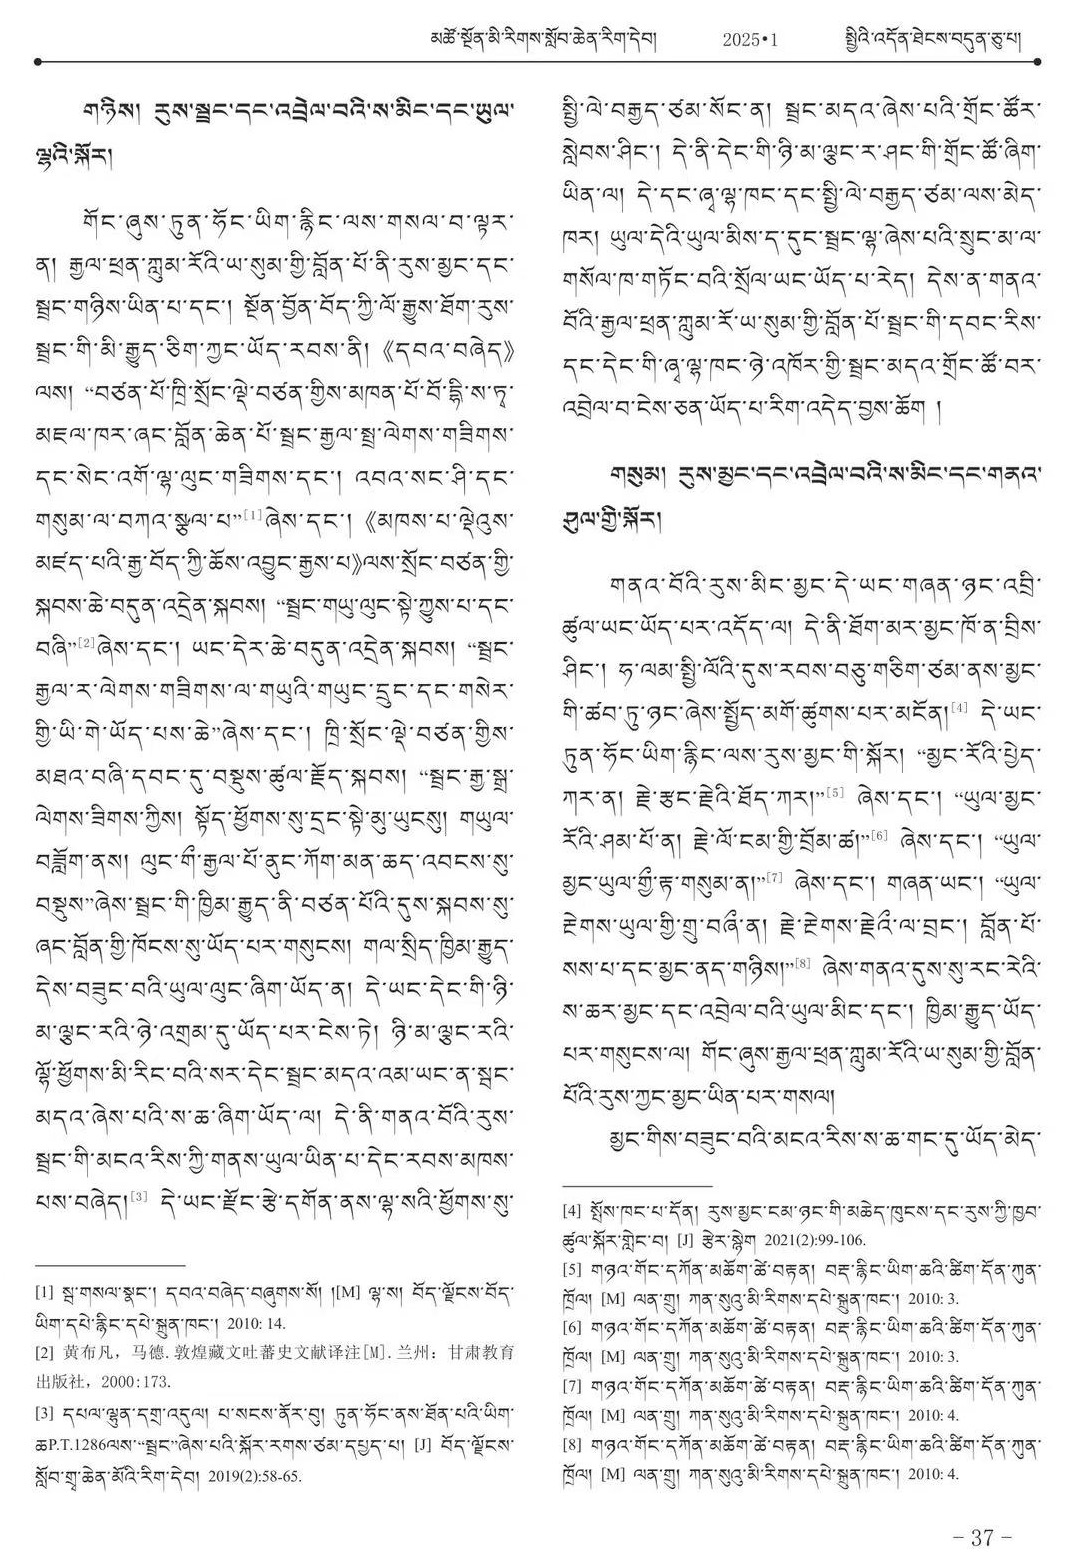 མཚོ་སྔོན་མི་རིགས་སློབ་ཆེན་རིག་དེབ། 2025•1 སྤྱིའི་འདོན་ཐེངས་བདུན་ཅུ་པ།
གཉིས། རུས་སྦྲང་དང་འབྲེལ་བའི་ས་མིང་དང་ཡུལ་
ལྷའི་སྐོར།
གོང་ཞུས་ཏུན་ཧོང་ཡིག་རྙིང་ལས་གསལ་བ་ལྟར་
ན། རྒྱལ་ཕྲན་ཀླུམ་རོའི་ཡ་སུམ་གྱི་བློན་པོ་ནི་རུས་མྱང་དང་
སྦྲང་གཉིས་ཡིན་པ་དང་། སྔོན་བྱོན་བོད་ཀྱི་ལོ་རྒྱུས་ཐོག་རུས་
སྦྲང་གི་མི་རྒྱུད་ཅིག་ཀྱང་ཡོད་རབས་ནི།《དབའ་བཞེད》
ལས། “བཙན་པོ་ཁྲི་སྲོང་ལྡེ་བཙན་གྱིས་མཁན་པོ་བོ་དྷི་ས་ཏྭ་
མཇལ་ཁར་ཞང་བློན་ཆེན་པོ་སྦྲང་རྒྱལ་སྦྲ་ལེགས་གཟིགས་
དང་སེང་འགོ་ལྷ་ལུང་གཟིགས་དང་། འབའ་སང་ཤི་དང་
གསུམ་ལ་བཀའ་སྩལ་པ”[1]ཞེས་དང་།《མཁས་པ་ལྡེའུས་
མཛད་པའི་རྒྱ་བོད་ཀྱི་ཆོས་འབྱུང་རྒྱས་པ》ལས་སྲོང་བཙན་གྱི་
སྐབས་ཆེ་བདུན་འདྲེན་སྐབས། “སྦྲང་གཡུ་ལུང་སྟེ་ཀྱུས་པ་དང་
བཞི”[2]ཞེས་དང་། ཡང་དེར་ཆེ་བདུན་འདྲེན་སྐབས། “སྦྲང་
རྒྱལ་ར་ལེགས་གཟིགས་ལ་གཡུའི་གཡུང་དྲུང་དང་གསེར་
གྱི་ཡི་གེ་ཡོད་པས་ཆེ”ཞེས་དང་། ཁྲི་སྲོང་ལྡེ་བཙན་གྱིས་
མཐའ་བཞི་དབང་དུ་བསྡུས་ཚུལ་རྗོད་སྐབས། “སྦྲང་རྒྱ་སྒྲ་
ལེགས་ཟིགས་ཀྱིས། སྟོད་ཕྱོགས་སུ་དྲང་སྟེ་མུ་ཡུངསུ། གཡུལ་
བཟློག་ནས། ལུང་གྀ་རྒྱལ་པོ་ནུང་ཀོག་མན་ཆད་འབངས་སུ་
བསྡུས”ཞེས་སྦྲང་གི་ཁྱིམ་རྒྱུད་ནི་བཙན་པོའི་དུས་སྐབས་སུ་
ཞང་བློན་གྱི་ཁོངས་སུ་ཡོད་པར་གསུངས། གལ་སྲིད་ཁྱིམ་རྒྱུད་
དེས་བཟུང་བའི་ཡུལ་ལུང་ཞིག་ཡོད་ན། དེ་ཡང་དེང་གི་ཉི་
མ་ལྕང་རའི་ཉེ་འགྲམ་དུ་ཡོད་པར་ངེས་ཏེ། ཉི་མ་ལྕང་རའི་
ལྷོ་ཕྱོགས་མི་རིང་བའི་སར་དེང་སྦྲང་མདའ་འམ་ཡང་ན་སྦང་
མདའ་ཞེས་པའི་ས་ཆ་ཞིག་ཡོད་ལ། དེ་ནི་གནའ་བོའི་རུས་
སྦྲང་གི་མངའ་རིས་ཀྱི་གནས་ཡུལ་ཡིན་པ་དེང་རབས་མཁས་
པས་བཞེད།[3] དེ་ཡང་རྫོང་རྩེ་དགོན་ནས་ལྷ་སའི་ཕྱོགས་སུ་
[1] སྦ་གསལ་སྣང་། དབའ་བཞེད་བཞུགས་སོ། །[M] ལྷ་ས། བོད་ལྗོངས་བོད་
ཡིག་དཔེ་རྙིང་དཔེ་སྐྲུན་ཁང་། 2010: 14.
[2] 黄布凡，马德.敦煌藏文吐蕃史文献译注[M].兰州：甘肃教育
出版社，2000:173.
[3] དཔལ་ལྷུན་དགྲ་འདུལ། པ་སངས་ནོར་བུ། ཏུན་ཧོང་ནས་ཐོན་པའི་ཡིག་
ཆP.T.1286ལས་“སྦྲང”ཞེས་པའི་སྐོར་རགས་ཙམ་དཔྱད་པ། [J] བོད་ལྗོངས་
སློབ་གྲྭ་ཆེན་མོའི་རིག་དེབ། 2019(2):58-65.
སྤྱི་ལེ་བརྒྱད་ཙམ་སོང་ན། སྦྲང་མདའ་ཞེས་པའི་གྲོང་ཚོར་
སླེབས་ཤིང་། དེ་ནི་དེང་གི་ཉི་མ་ལྕང་ར་ཤང་གི་གྲོང་ཚོ་ཞིག་
ཡིན་ལ། དེ་དང་ཞྭ་ལྷ་ཁང་དང་སྤྱི་ལེ་བརྒྱད་ཙམ་ལས་མེད་
ཁར། ཡུལ་དེའི་ཡུལ་མིས་ད་དུང་སྦྲང་ལྷ་ཞེས་པའི་སྲུང་མ་ལ་
གསོལ་ཁ་གཏོང་བའི་སྲོལ་ཡང་ཡོད་པ་རེད། དེས་ན་གནའ་
བོའི་རྒྱལ་ཕྲན་ཀླུམ་རོ་ཡ་སུམ་གྱི་བློན་པོ་སྦྲང་གི་དབང་རིས་
དང་དེང་གི་ཞྭ་ལྷ་ཁང་ཉེ་འཁོར་གྱི་སྦྲང་མདའ་གྲོང་ཚོ་བར་
འབྲེལ་བ་ངེས་ཅན་ཡོད་པ་རིག་འདེད་བྱས་ཆོག །
གསུམ། རུས་མྱང་དང་འབྲེལ་བའི་ས་མིང་དང་གནའ་
ཤུལ་གྱི་སྐོར།
གནའ་བོའི་རུས་མིང་མྱང་དེ་ཡང་གཞན་ཉང་འབྲི་
ཚུལ་ཡང་ཡོད་པར་འདོད་ལ། དེ་ནི་ཐོག་མར་མྱང་ཁོ་ན་བྲིས་
ཤིང་། ཧ་ལམ་སྤྱི་ལོའི་དུས་རབས་བཅུ་གཅིག་ཙམ་ནས་མྱང་
གི་ཚབ་ཏུ་ཉང་ཞེས་སྤྱོད་མགོ་ཚུགས་པར་མངོན།[4] དེ་ཡང་
ཏུན་ཧོང་ཡིག་རྙིང་ལས་རུས་མྱང་གི་སྐོར། “མྱང་རོའི་ཕྱེད་
ཀར་ན། རྗེ་རྩང་རྗེའི་ཐོད་ཀར།”[5] ཞེས་དང་། “ཡུལ་མྱང་
རོའི་ཤམ་པོ་ན། རྗེ་ལོ་ངམ་གྱི་བྲོམ་ཚ།”[6] ཞེས་དང་། “ཡུལ་
མྱང་ཡུལ་གྱྀ་རྟ་གསུམ་ན།”[7] ཞེས་དང་། གཞན་ཡང་། “ཡུལ་
རྔེགས་ཡུལ་གྱི་གྲུ་བཞྀ་ན། རྗེ་རྔེགས་རྗེའྀ་ལ་བྲང་། བློན་པོ་
སས་པ་དང་མྱང་ནད་གཉིས།”[8] ཞེས་གནའ་དུས་སུ་རང་རེའི་
ས་ཆར་མྱང་དང་འབྲེལ་བའི་ཡུལ་མིང་དང་། ཁྱིམ་རྒྱུད་ཡོད་
པར་གསུངས་ལ། གོང་ཞུས་རྒྱལ་ཕྲན་ཀླུམ་རོའི་ཡ་སུམ་གྱི་བློན་
པོའི་རུས་ཀྱང་མྱང་ཡིན་པར་གསལ།
མྱང་གིས་བཟུང་བའི་མངའ་རིས་ས་ཆ་གང་དུ་ཡོད་མེད་
[4] སྤོས་ཁང་པ་དོན། རུས་མྱང་ངམ་ཉང་གི་མཆེད་ཁུངས་དང་རུས་ཀྱི་ཁྱབ་
ཚུལ་སྐོར་གླེང་བ། [J] རྩེར་སྙེག 2021(2):99-106.
[5] གཉའ་གོང་དཀོན་མཆོག་ཚེ་བརྟན། བརྡ་རྙིང་ཡིག་ཆའི་ཚིག་དོན་ཀུན་
ཁྲོལ། [M] ལན་གྲུ། ཀན་སུའུ་མི་རིགས་དཔེ་སྐྲུན་ཁང་། 2010: 3.
[6] གཉའ་གོང་དཀོན་མཆོག་ཚེ་བརྟན། བརྡ་རྙིང་ཡིག་ཆའི་ཚིག་དོན་ཀུན་
ཁྲོལ། [M] ལན་གྲུ། ཀན་སུའུ་མི་རིགས་དཔེ་སྐྲུན་ཁང་། 2010: 3.
[7] གཉའ་གོང་དཀོན་མཆོག་ཚེ་བརྟན། བརྡ་རྙིང་ཡིག་ཆའི་ཚིག་དོན་ཀུན་
ཁྲོལ། [M] ལན་གྲུ། ཀན་སུའུ་མི་རིགས་དཔེ་སྐྲུན་ཁང་། 2010: 4.
[8] གཉའ་གོང་དཀོན་མཆོག་ཚེ་བརྟན། བརྡ་རྙིང་ཡིག་ཆའི་ཚིག་དོན་ཀུན་
ཁྲོལ། [M] ལན་གྲུ། ཀན་སུའུ་མི་རིགས་དཔེ་སྐྲུན་ཁང་། 2010: 4.
- 37 -